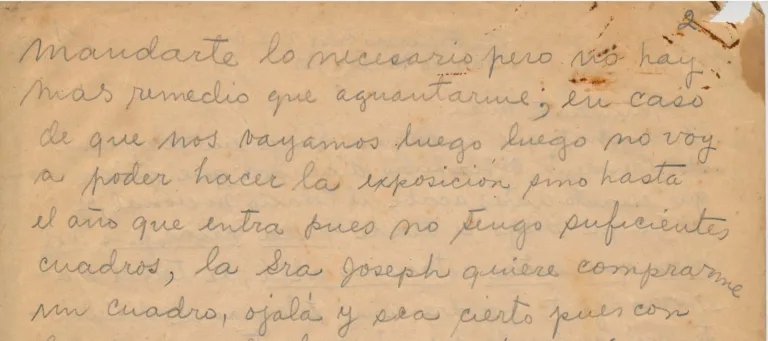 2
mandarte lo necesario pero no hay
mas remedio que aguantarme, en caso
de que nos vayamos luego luego no voy
a poder hacer la exposición sino hasta
el año que entra pues no tengo suficientes
cuadros, la Sra Joseph quiere comprarme
un cuadro, ojalá y sea cierto pues con